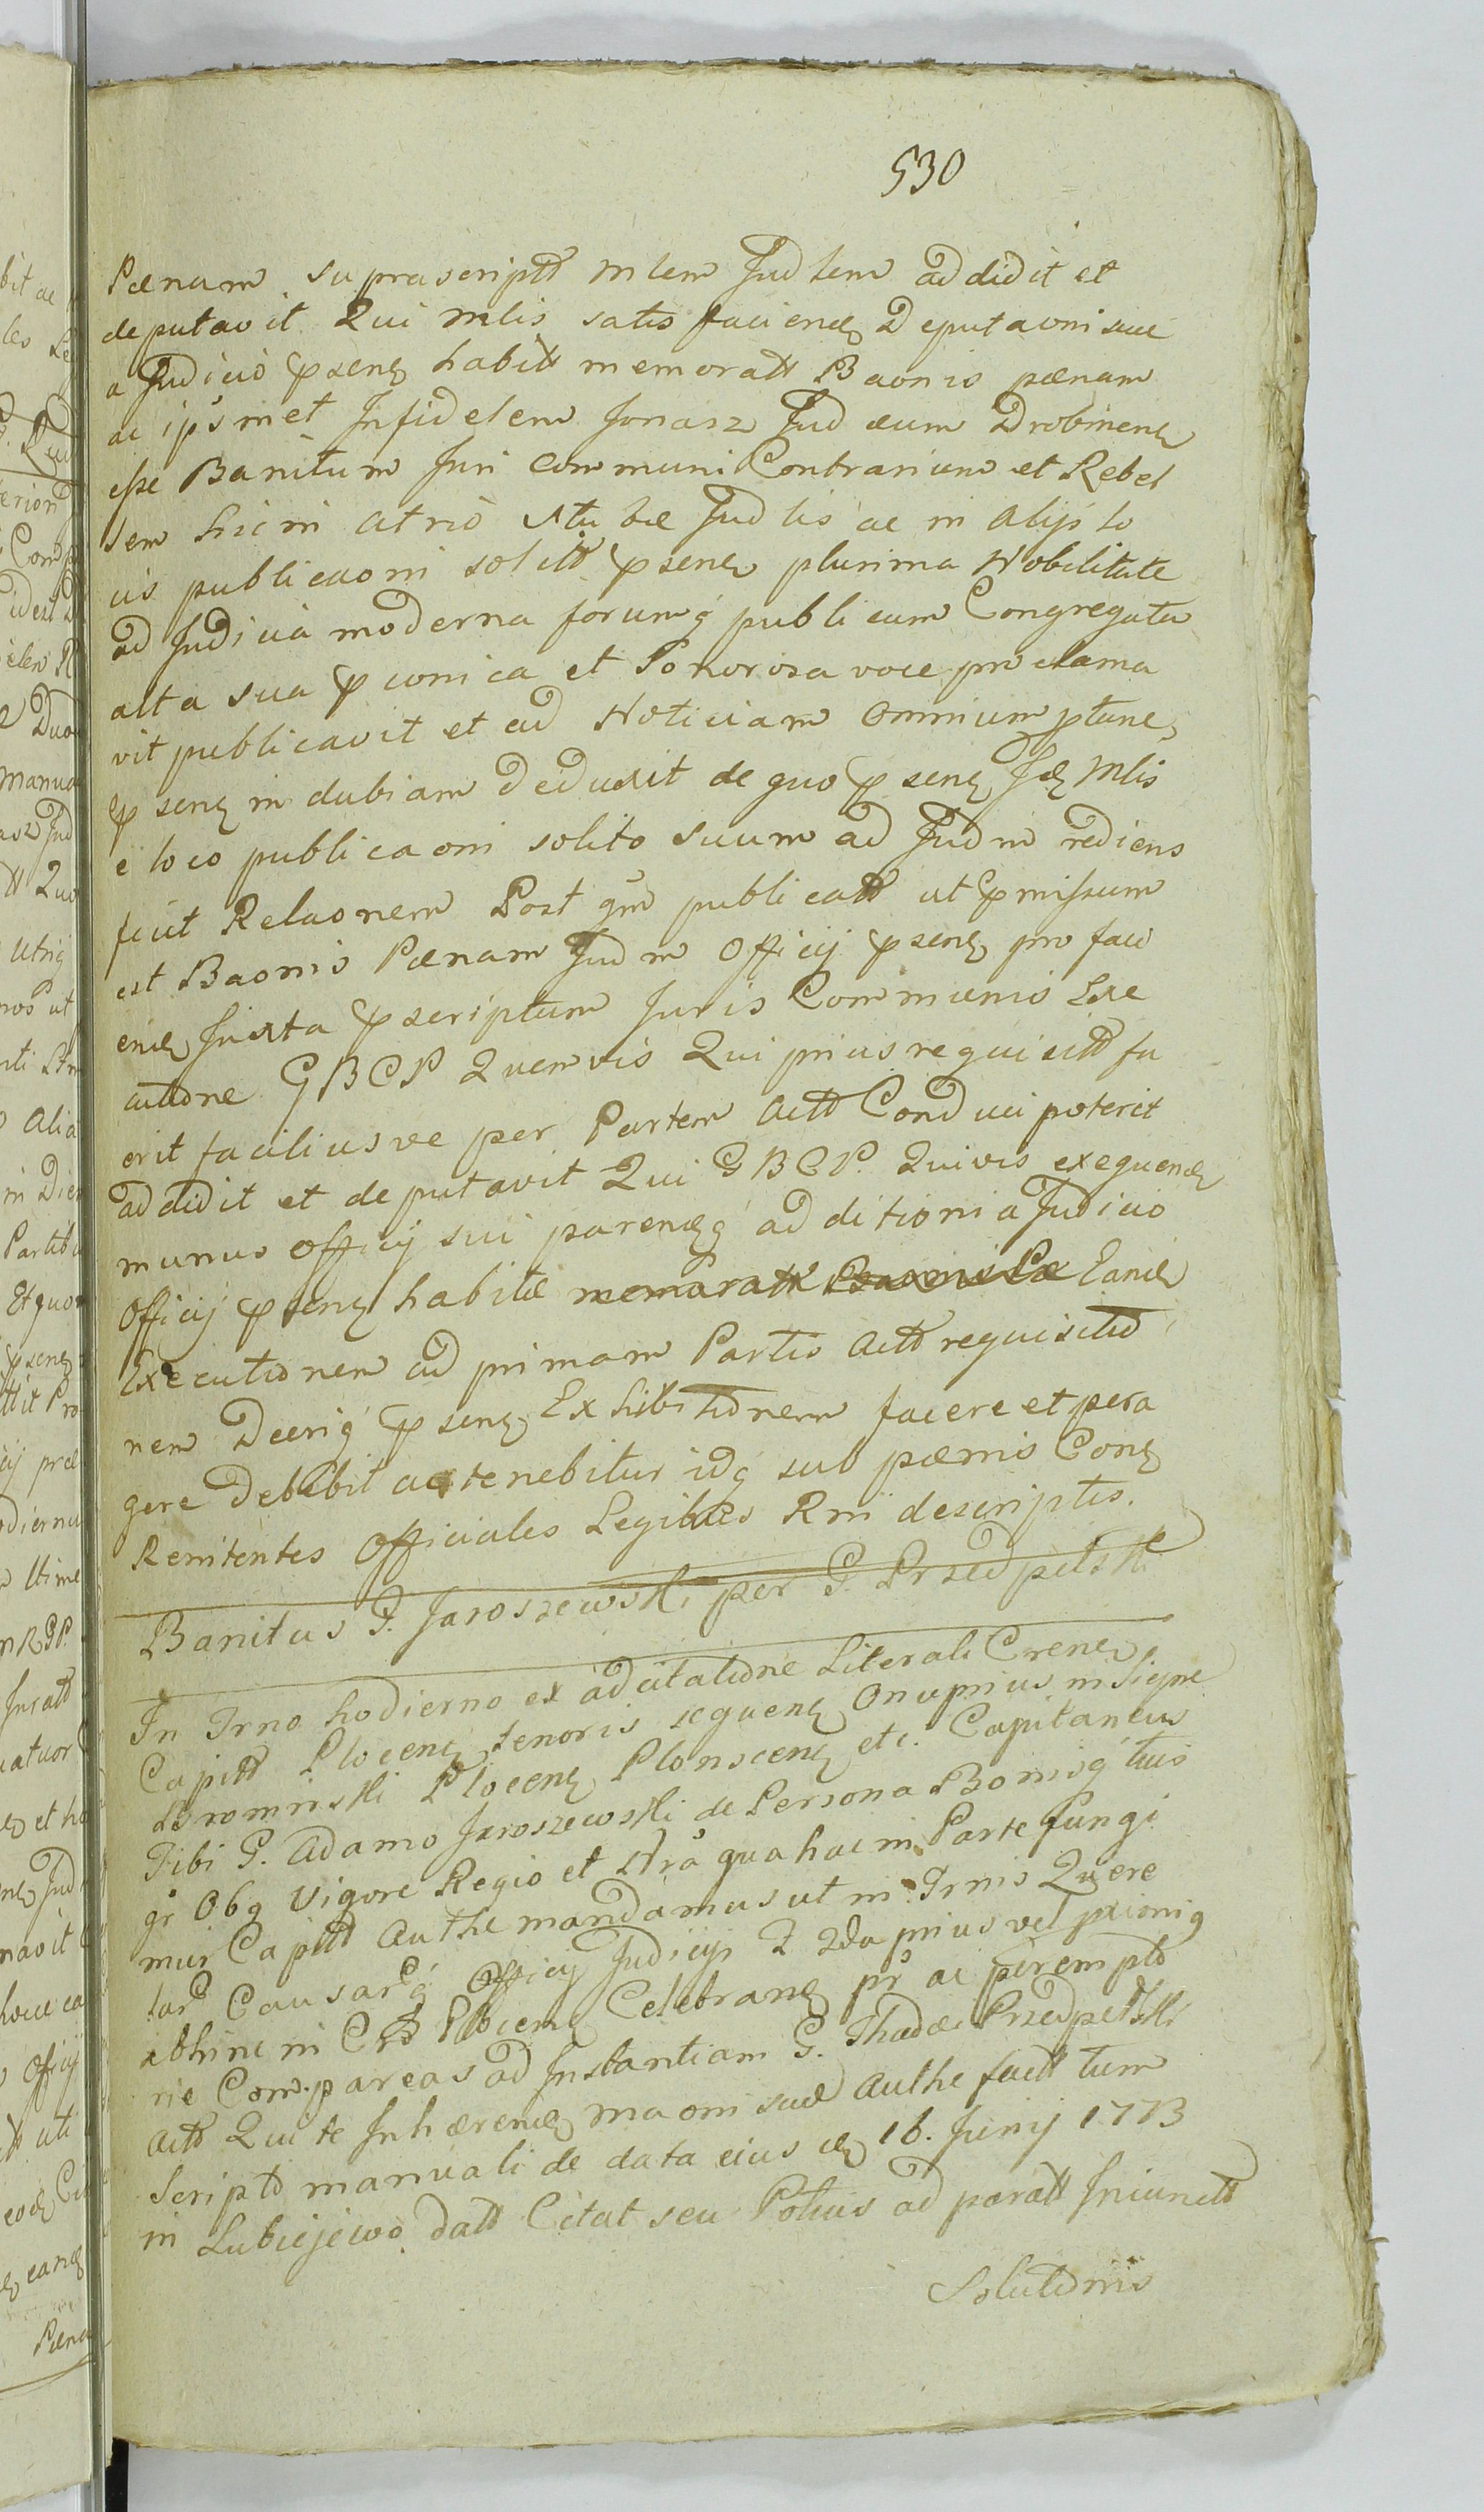 530
Pænam supra scriptt mlem Judlem addidit et
deputavit Qui mlis satis faciene Deputaoni suæ
a Judicio psens habitt memoratt Baonis pænam
ac ipsmet Infidelem Jonasz Judæum Drobinens
esse Banitum Juri Communi Contrarium et Rebel
lem hic in atrio stubæ Judlis ac in alijs lo
cis publicaoni solitt psene plurima Nobilitate
ad Judicia moderna forumq publicum Congregata
alta sua pconica et Sonorosa voce proclama
vit publicavit et ad Noticiam omnium ptune
psens indubiam deduxit de quo psens Idem Mlis
e loco publicaoni solito suum ad Judm rediens
fecit Relaonem Post qm publicatt ut pmissum
est Baonis Pænam Judm Officij psens pro faci
ene Juxta pscriptum Juris Communis Exe
cutione GBCP Quemvis Qui prius requisitt fu
erit faciliusve per Partem Actt Conduci poterit
addidit et deputavit Qui GBCP. Quivis exequene
munus officij sui pareneq additioni a Judicio
Officij psens habitæ memoratt Baonis Pæ Eande
Executionem ad primam Partis Actt requisitio
nem Decriq psens Exhibitionem facere et pera
gere debebit ac tenebitur idq sub pænis Cong
Renitentes Officiales Legibus Rni descriptis.
Banitus G. Jaroszewski per G. Przedpelski
In Trno hodierno ex adcitatione Literali Crene
Capitt Plocens tenoris sequens Onuprius insigne
Bromirski Plocens Plonscens etc. Capitaneus
Tibi G. Adamo Jaroszewski de Persona Bonisq tuis
gr Obq Vigore Regio et Nra qua hac in Parte fungi
mur Capitt Authe mandamus ut in Trnis Quere
lar Causarq Officij Judicijs 2 2da prius vel pxioniq
abhinc in CRS Plocens Celebrane pr ac perempto
rie Compareas ad Instantiam G. Thadæi Przedpelski
Actt Qui te Inhærene maoni suæ Authe factt tum
Scripto manuali de data eius de 16. Junij 1773
in Lubiejewo datt Citat seu Potius ad paratt Iniunctt
Solutionis